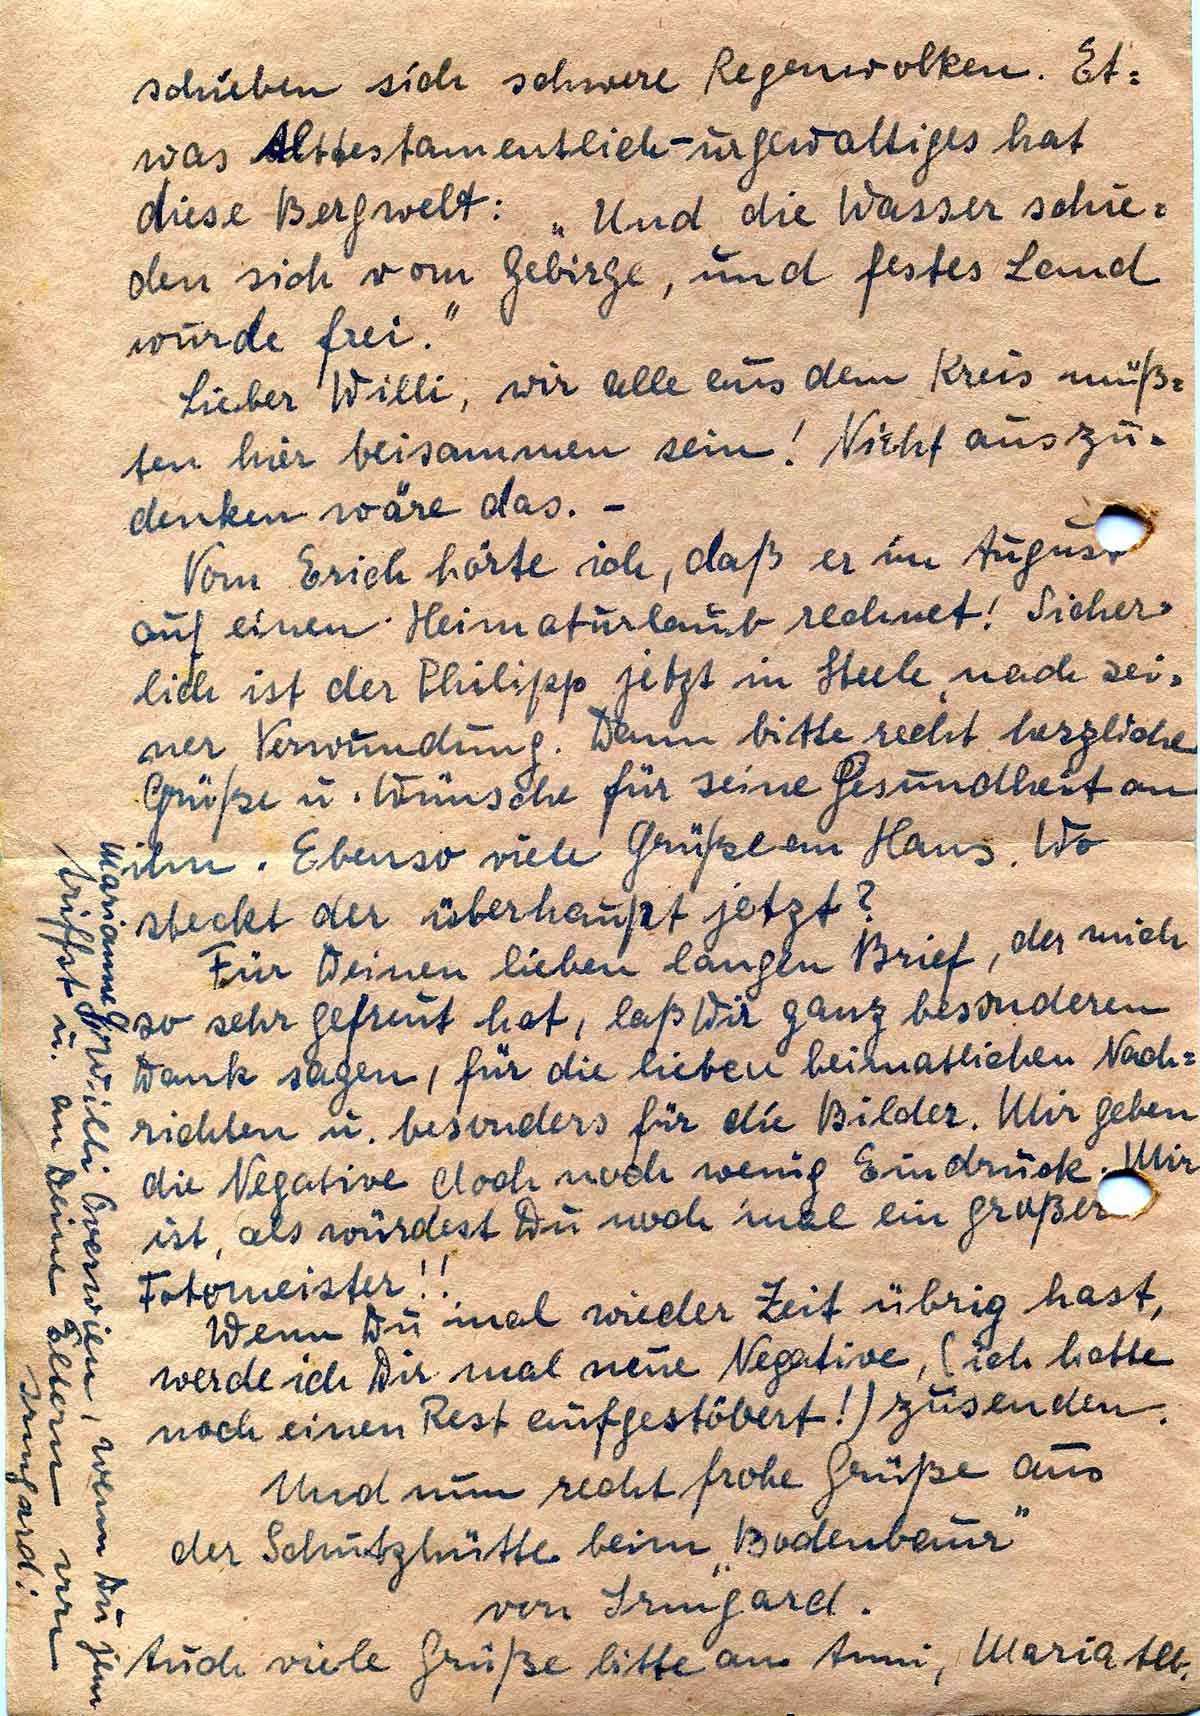 schieben sich schwere Regenwolken. Et=
was Alttestamentlich-urgewaltiges hat
diese Bergwelt: „Und die Wasser schie=
den sich vom Gebirge, und festes Land
wurde frei.“
Lieber Willi, wir alle aus dem Kreis müß=
ten hier beisammen sein! Nicht auszu=
denken wäre das. –
Vom Erich hörte ich, daß er im August
auf einen Heimaturlaub rechnet! Sicher=
lich ist der Philipp jetzt in Steele, nach sei=
ner Verwundung. Dann bitte recht herzliche
Grüße u. Wünsche für seine Gesundheit an
ihn. Ebenso viele Grüße an Hans. Wo
steckt der überhaupt jetzt?
Für Deinen lieben langen Brief, der mich
so sehr gefreut hat, laß Dir ganz besonderen
Dank sagen, für die lieben heimatlichen Nach=
richten u. besonders für die Bilder. Mir geben
die Negative doch noch wenig Eindruck. Mir
ist, als würdest Du noch mal ein großer
Fotomeister!!
Wenn Du mal wieder Zeit übrig hast,
werde ich Dir mal neue Negative, (ich hatte
noch einen Rest aufgestöbert!) zusenden.
Und nun recht frohe Grüße aus
der Schutzhütte beim „Bodenbaur“
von Irmgard.
Auch viele Grüße bitte an Anni, Maria Alb.
Marianne, Willi Overwien, wenn Du jem
triffst u. an Deine Eltern von
Irmgard!